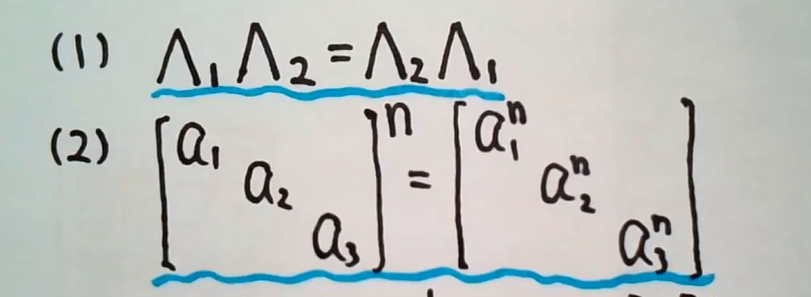 (1) Λ₁Λ₂=Λ₂Λ₁
(2) [a₁ a₂ a₃]ⁿ = [a₁ⁿ a₂ⁿ a₃ⁿ]